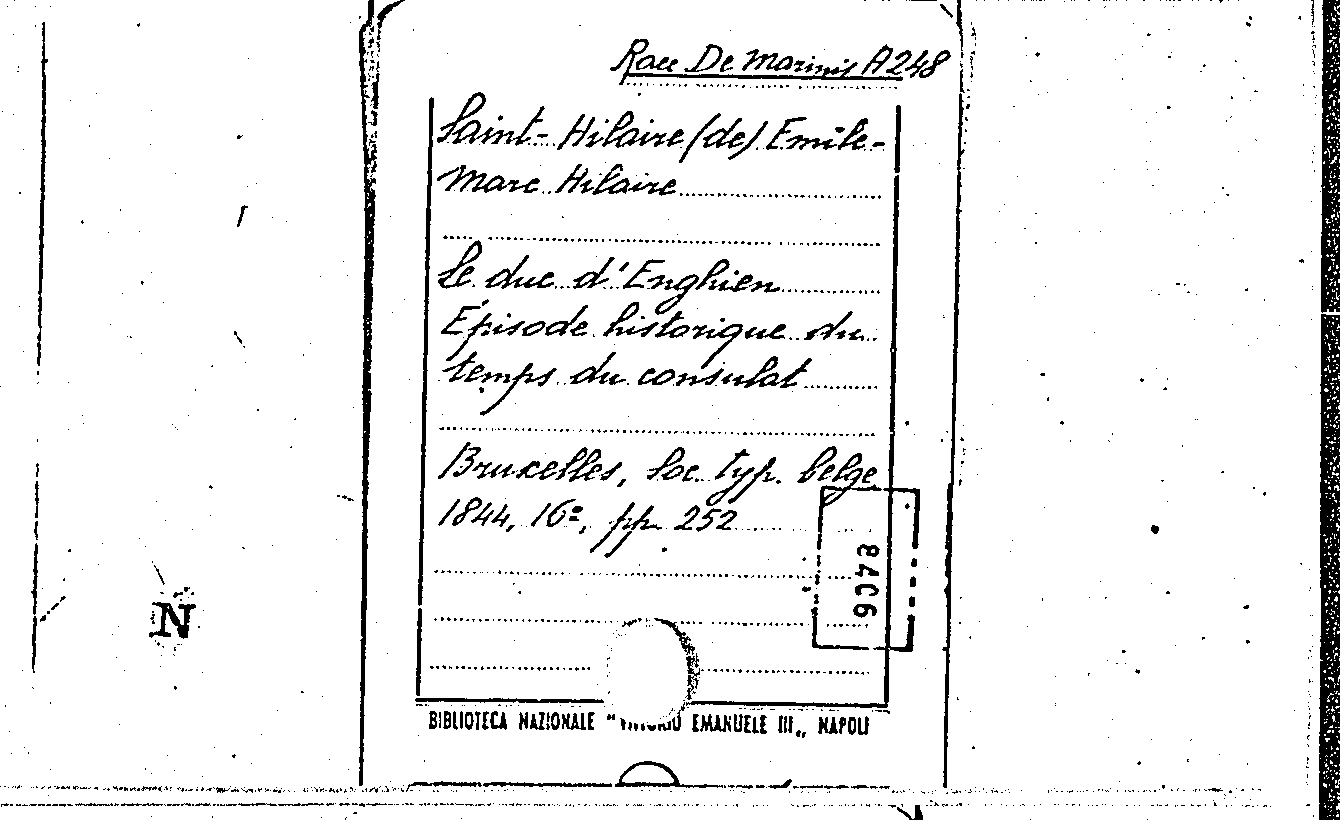 Racc De Marinis A 248
Saint-Hilaire (de) Emile-
Marc Hilaire
Le duc d'Enghien
Épisode historique du
temps du consulat
Bruxelles, Soc. typ. belge
1844, 16º, pp. 252
8406
N
BIBLIOTECA NAZIONALE "VITTORIO EMANUELE III„ NAPOLI